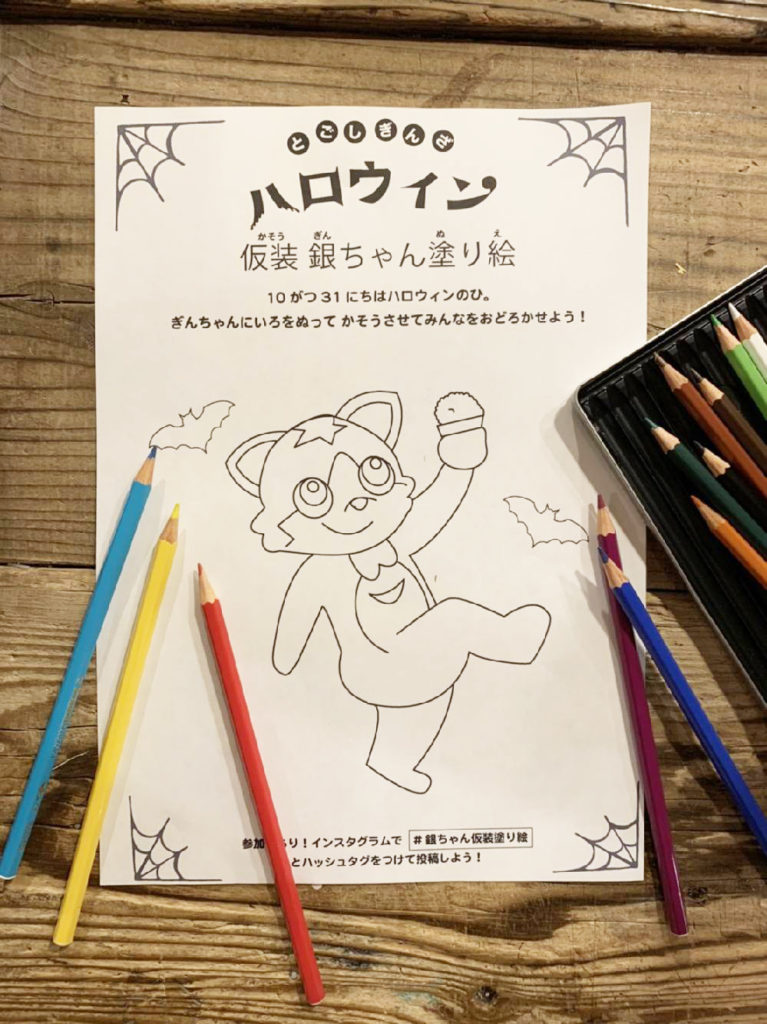 とごしぎんざ
ハロウィン
かそう ぎん ぬ え
仮装 銀ちゃん塗り絵
10 がつ 31 にちはハロウィンのひ。
ぎんちゃんにいろをぬって かそうさせてみんなをおどろかせよう！
参加 り！インスタグラムで #銀ちゃん仮装塗り絵
とハッシュタグをつけて投稿しよう！